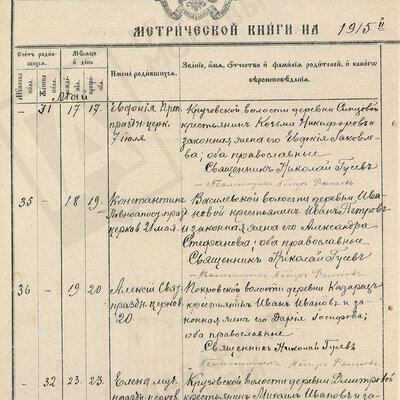 МЕТРИЧЕСКОЙ КНИГИ НА 1915й
Счетъ родив-
шихся.
Мѣсяцъ
и день
Мужеска пола.
Женска пола.
рожде-
нія.
креще-
нія.
Имена родившихся.
Званіе, имя, отчество и фамилія родителей, и какого
вѣроисповѣданія.
Май
- 31 17 17.
Евдокія
праздн. церк.
7 іюля.
Круговской волости деревни
крестьянинъ Козьма Никифоровъ и
законная жена его Евдокія Яковле-
ва; оба православные
Священникъ Николай Гусевъ
35 - 18 19
Константинъ
Равноапост. праз
церков. 21 мая.
Василевской волости деревни Ива-
новой крестьянинъ Иванъ Петровъ
и законная жена его Александра
Стефанова; оба православные
Священникъ Николай Гусевъ
36 - 19 20
Алексій
праздн. церков.
20.
Покровской волости деревни
крестьянинъ Иванъ Ивановъ и за-
конная жена его Дарія Іосифова;
оба православные
Священникъ Николай Гусевъ
- 32 23. 23.
Елена муч.
праздн. церков
Круговской волости деревни Дмитровой
крестьянинъ Михаилъ Ивановъ и за-